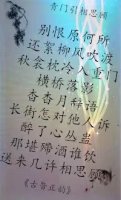 青门引相思顾
别恨原何所
还絮柳风吹渡
秋衾枕冷入重门
横桥落影
香香月科语
长街怎对他人诉
醉了心丛蛊
那堪礴酒谁饮
送来几许相思顾
《古管正韵》